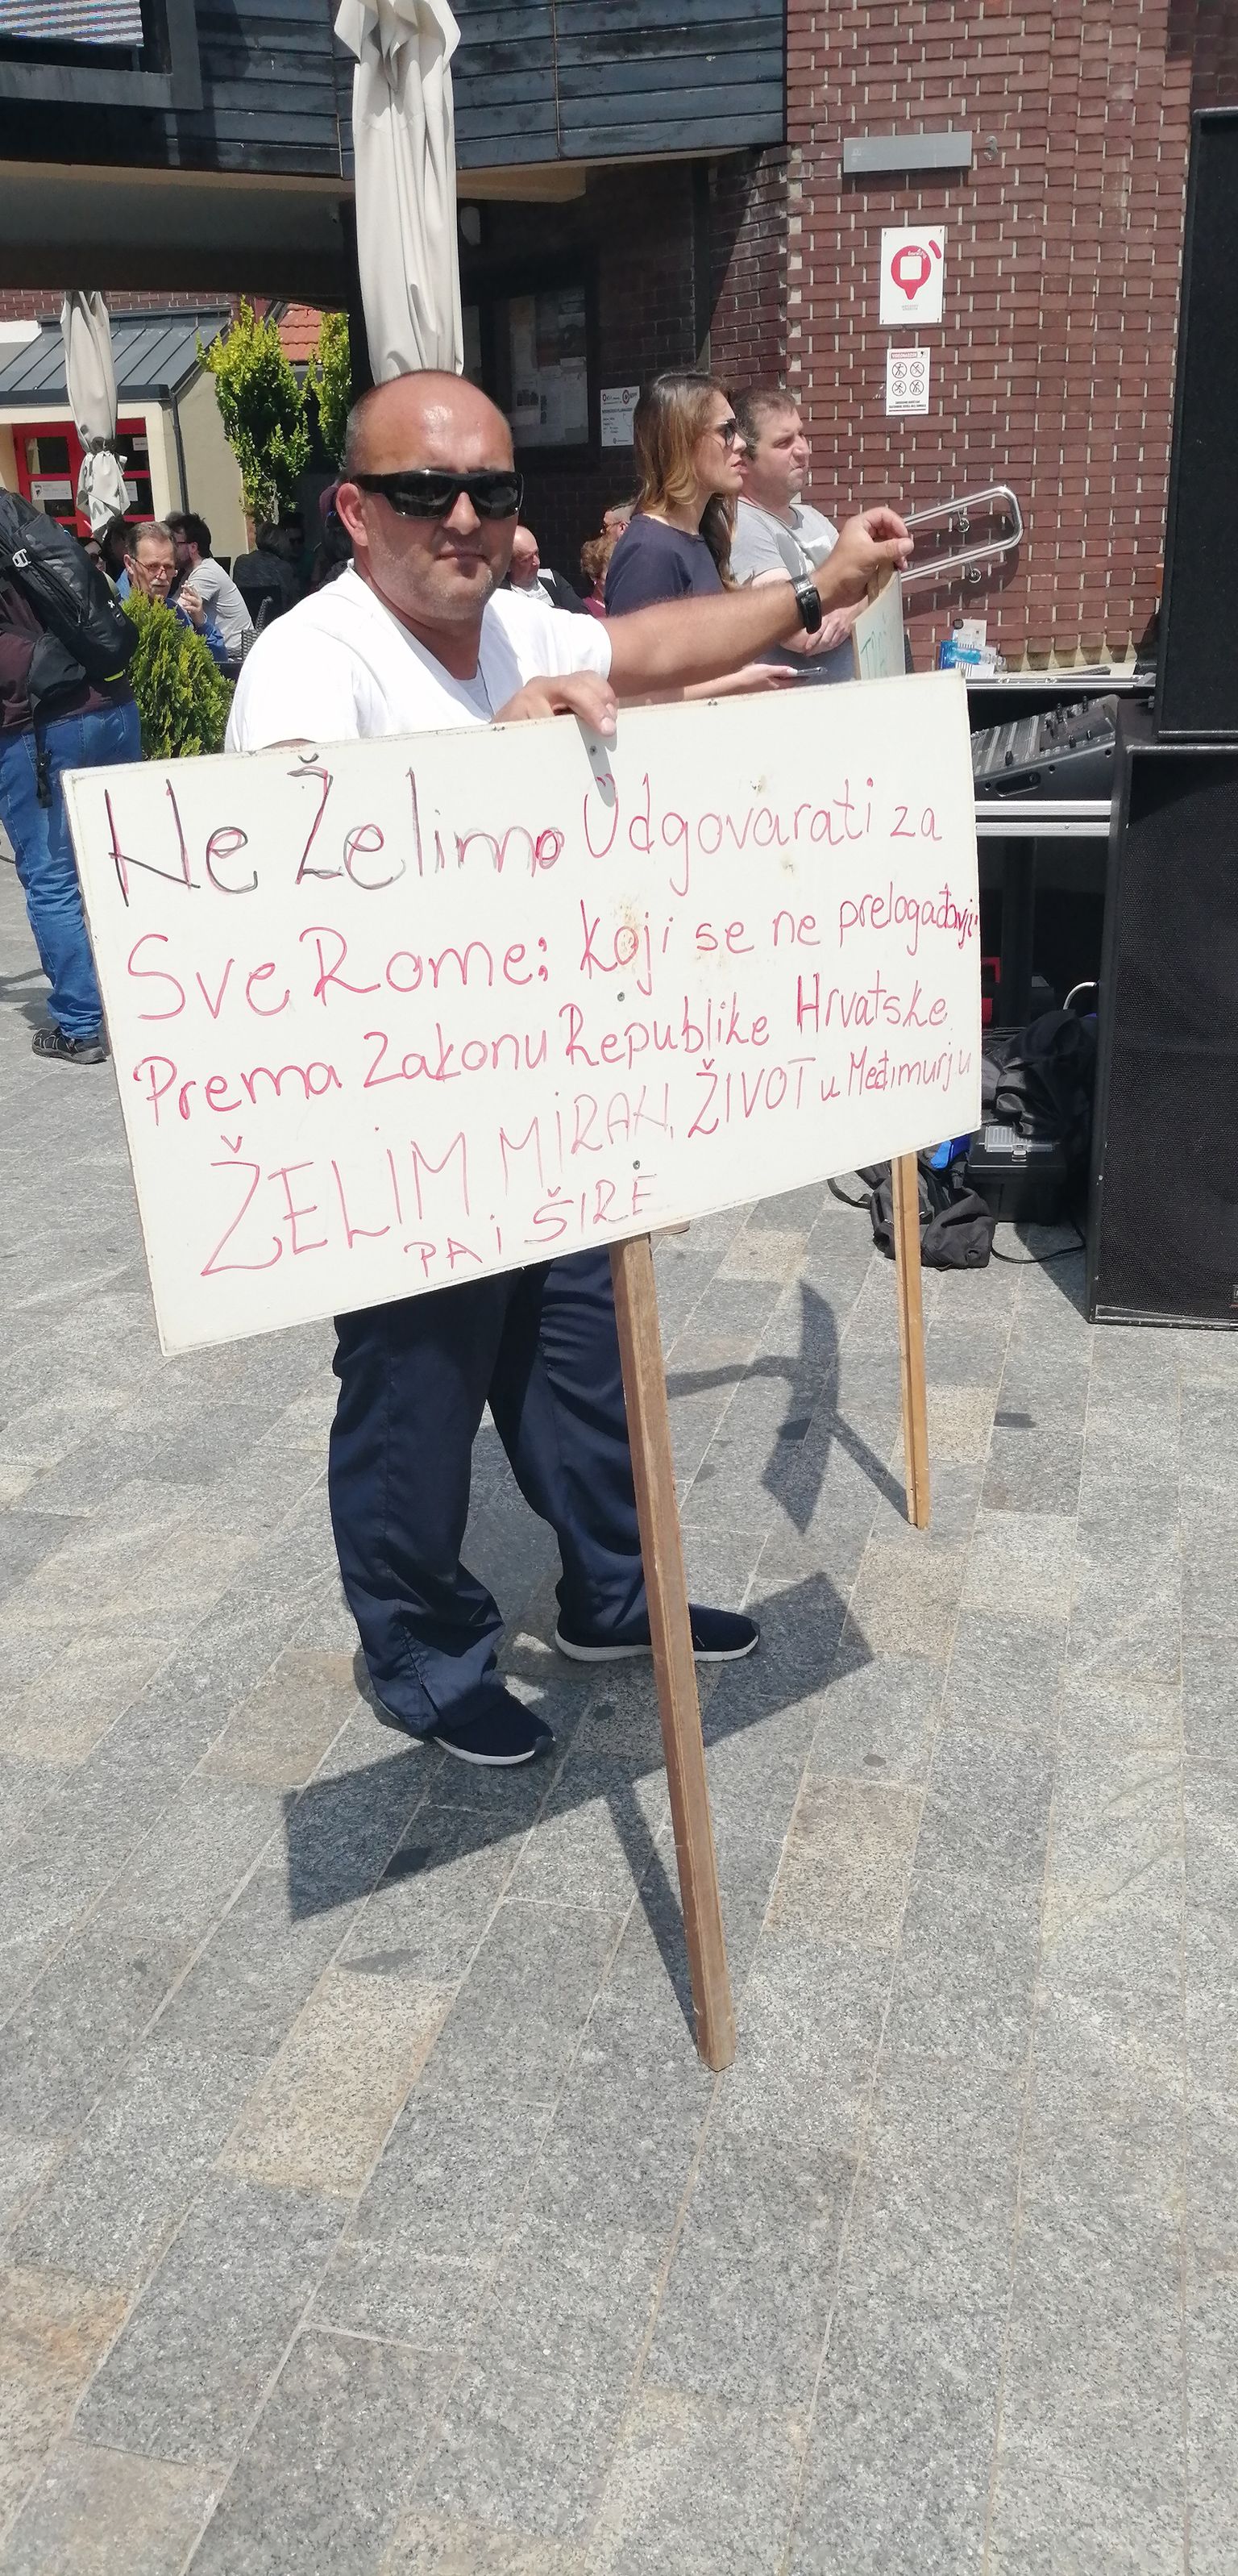 Ne Želimo Odgovarati za
Sve Rome: koji se ne prelogađavji
Prema Zakonu Republike Hrvatske
ŽELIM MIRAN, ŽIVOT u Međimurju
PA i ŠIRE